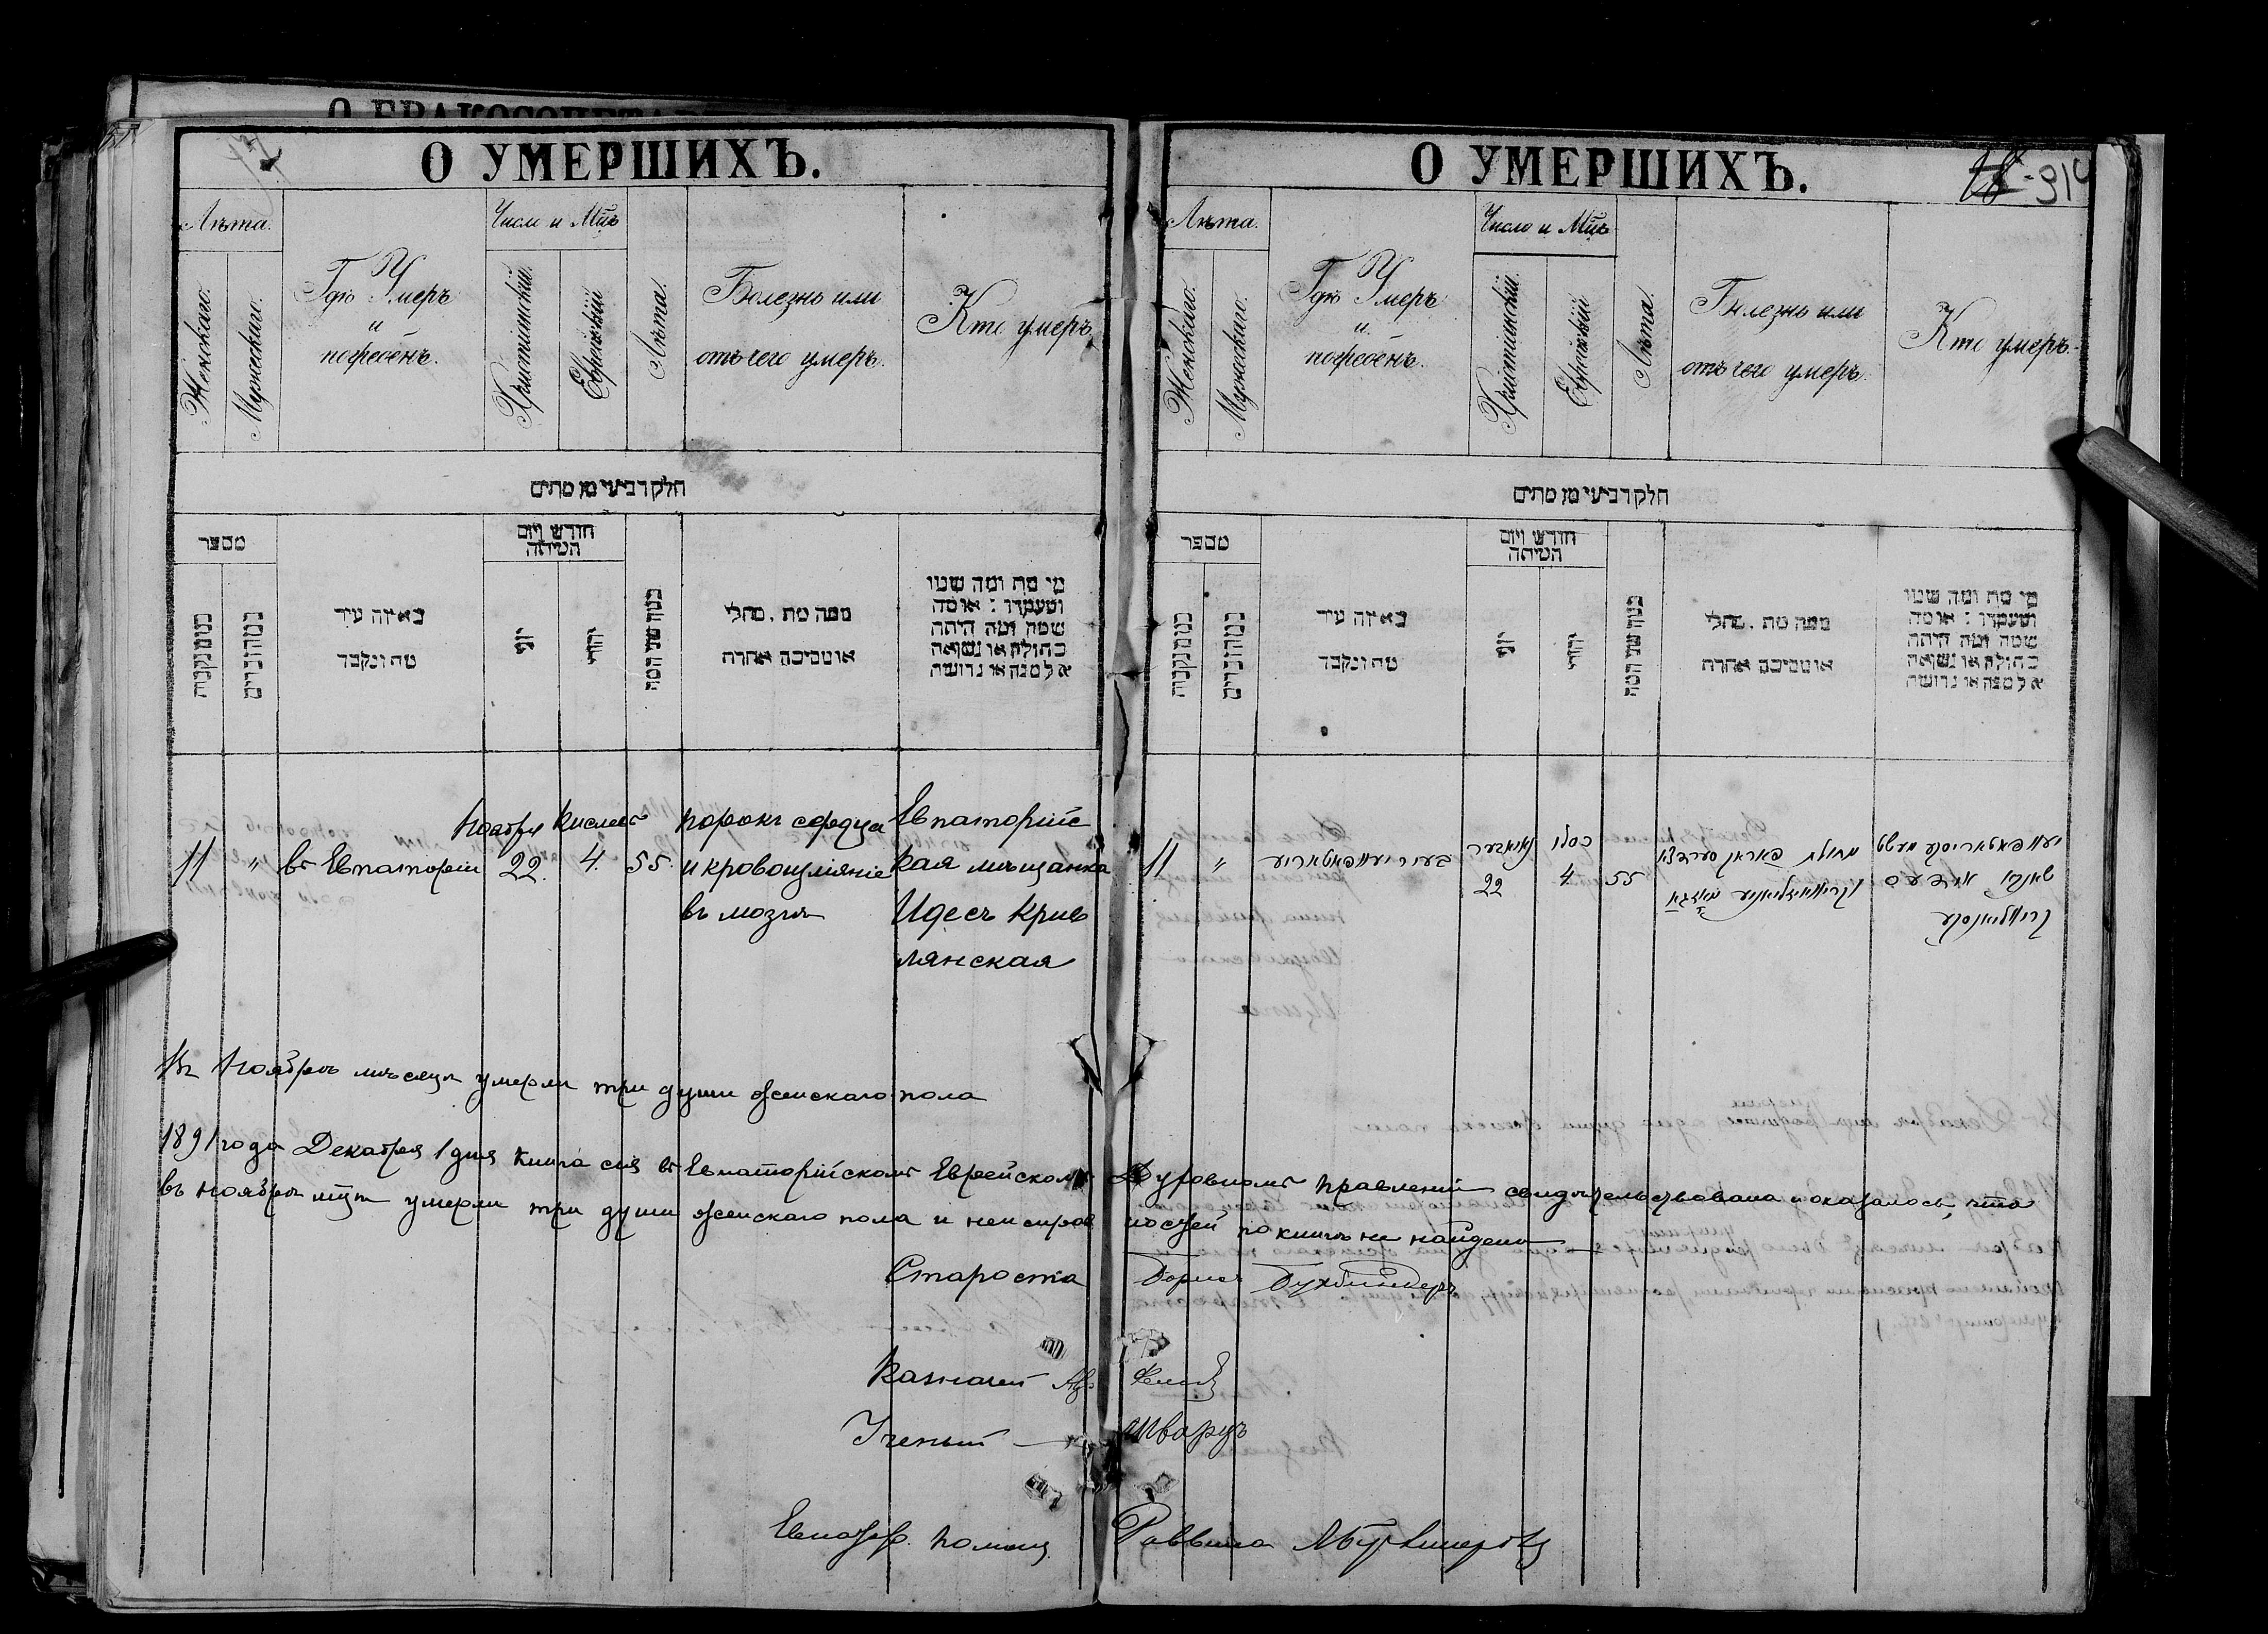 О УМЕРШИХЪ.
Лѣта.
Женскаго.
Мужескаго.
Гдѣ Умеръ
и
погребенъ.
Число и Мцъ
Христіанскій.
Еврейскій
Лѣта.
Болезнь или
отъ чего умеръ.
Кто умеръ.
חלק רביעי מן מתים
מספר
באיזה עיר
מת ונקבר
חודש ויום
המיתה
יוני
יהודי
ממה מת, מחלי
או מסיבה אחרת
מי מת ומה שמו
ומעמדו : או מה
שמה ומה היתה
בתולה או נשואה
אלמנה או גרושה
Ноября Кислевъ порокъ сердца Евпаторійс
11 " въ Евпаторіи 22. 4. 55. и кровоизліяніе кая мѣщанка
въ мозгъ Идесъ Крив
лянская
Въ Ноябрѣ мѣсяцѣ умерли три души женскаго пола
О УМЕРШИХЪ.
914
Лѣта.
Женскаго.
Мужескаго.
Гдѣ Умеръ
и
погребенъ.
Число и Мцъ
Христіанскій.
Еврейскій
Лѣта.
Болезнь или
отъ чего умеръ.
Кто умеръ.
חלק רביעי מן מתים
מספר
באיזה עיר
מת ונקבר
חודש ויום
המיתה
יוני
יהודי
ממה מת, מחלי
או מסיבה אחרת
מי מת ומה שמו
ומעמדו : או מה
שמה ומה היתה
בתולה או נשואה
אלמנה או גרושה
11 " בעיר יעוופאטאריע
כסלו
22 4 55
1891 года Декабря 1 дня книга сія въ Евпаторійскомъ Еврейскомъ Духовномъ Правленіи свидѣтельствована и оказалось, что
въ ноябрѣ мцѣ умерли три души женскаго пола и неисправностей по книгѣ не найдено
Староста Борисъ Бухбиндеръ
Казначей
Ученый — Шварцъ
Евпатор. помощ. Раввина